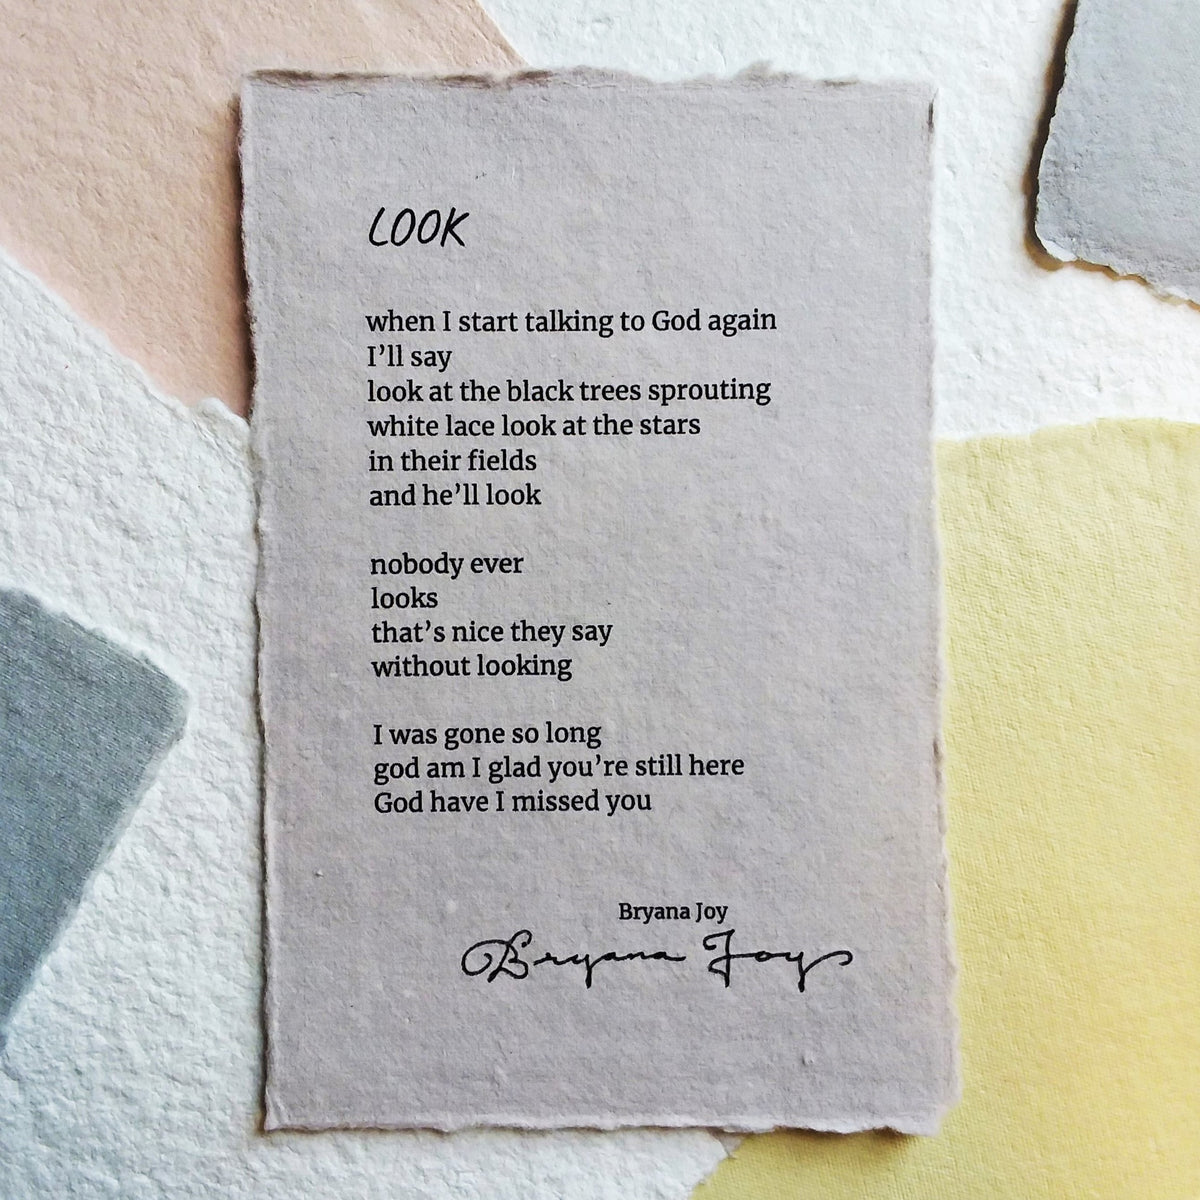 LOOK
when I start talking to God again
I’ll say
look at the black trees sprouting
white lace look at the stars
in their fields
and he’ll look
nobody ever
looks
that’s nice they say
without looking
I was gone so long
god am I glad you’re still here
God have I missed you
Bryana Joy
Bryana Joy